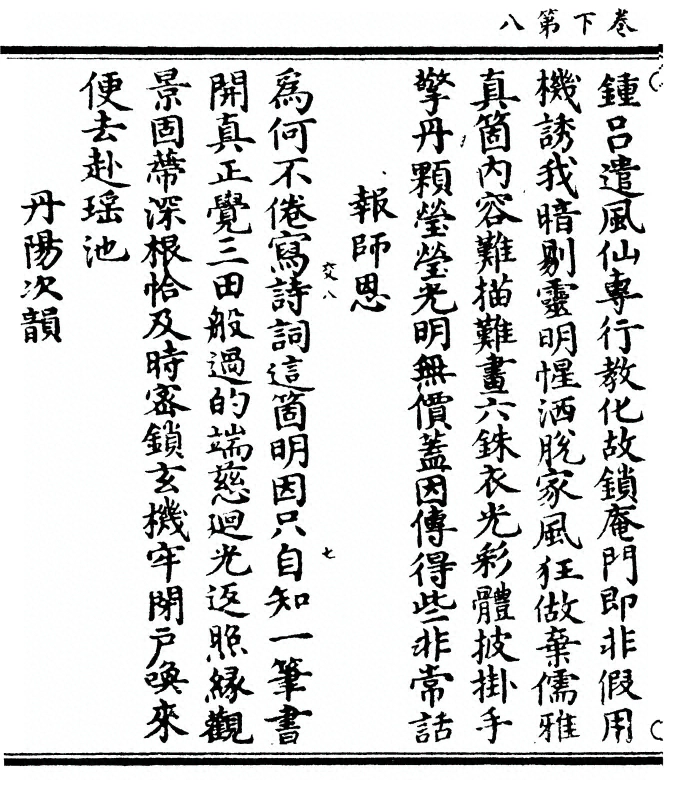 卷下第八
鍾吕遣風仙專行教化故鎖庵門即非假用
機誘我暗剔靈明惺洒脫家風狂做棄儒雅
真箇內容難描難畫六銖衣光彩體披掛手
擎丹顆瑩瑩光明無價蓋因傳得些非常話
報師恩
交八
七
為何不倦寫詩詞這箇明因只自知一筆書
開真正覺三田般過的端慈迴光返照緣觀
景固蔕深根恰及時密鎖玄機牢閉戶喚來
便去赴瑶池
丹陽次韻